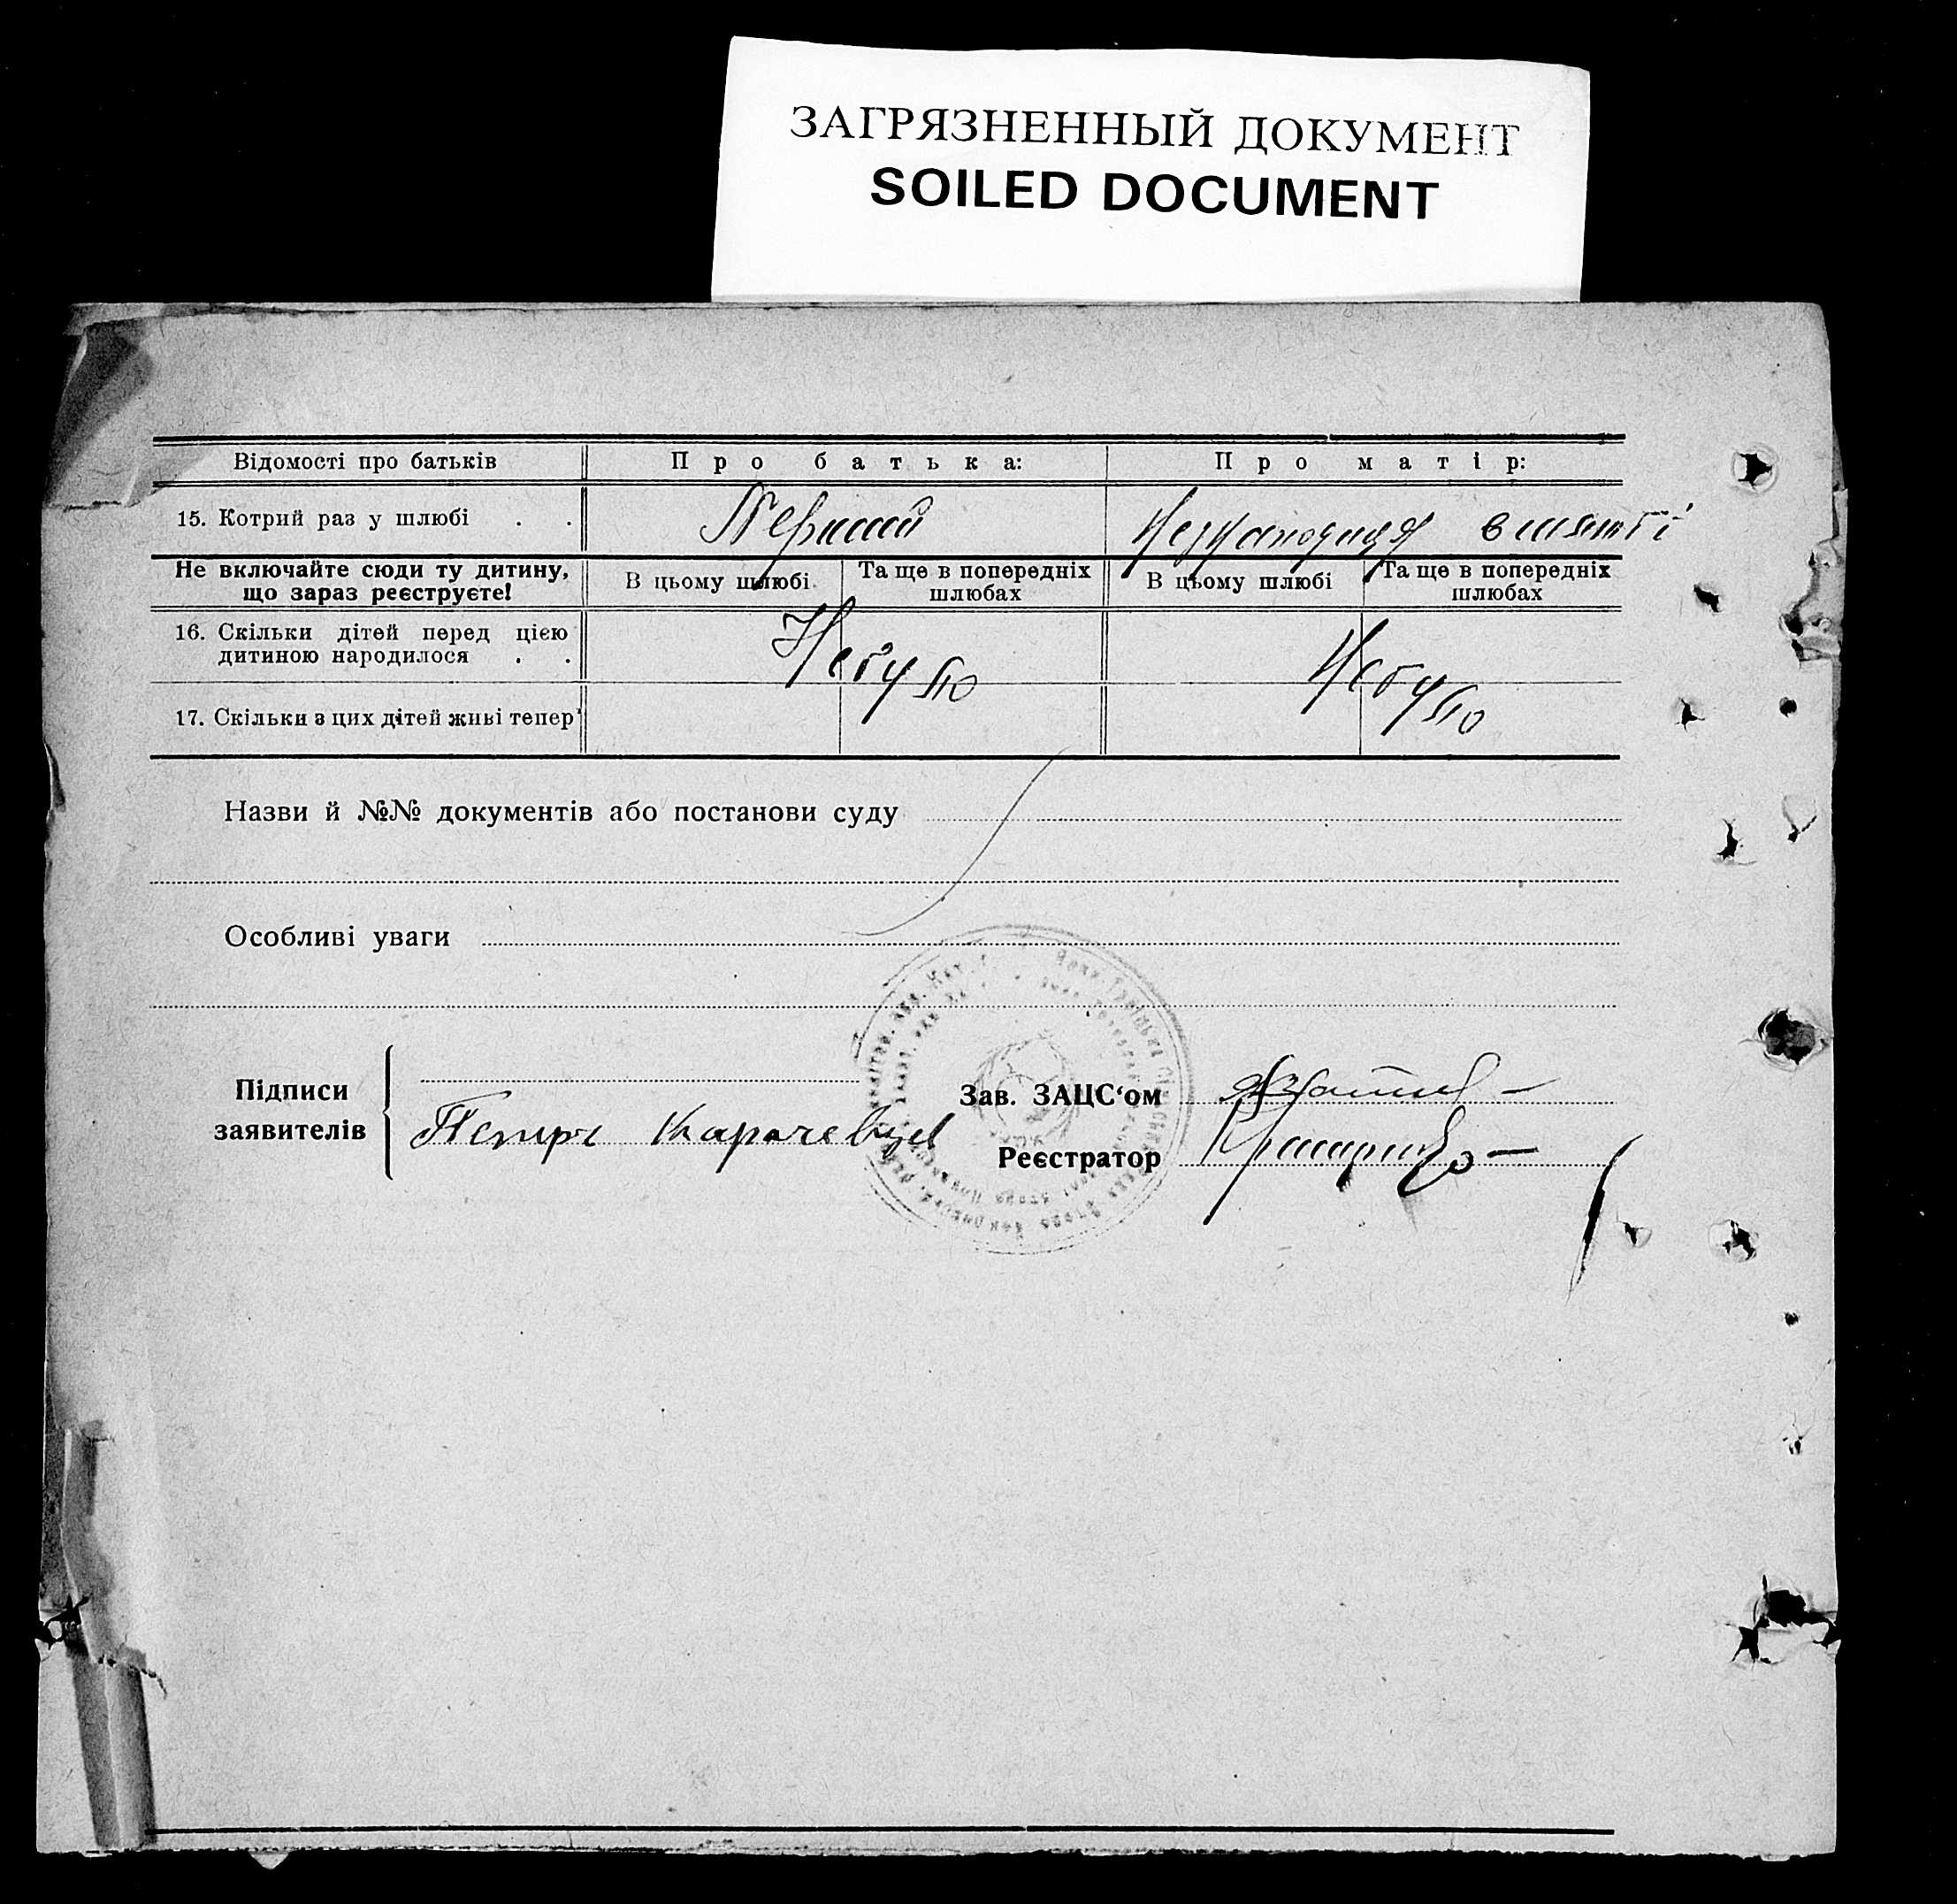 ЗАГРЯЗНЕННЫЙ ДОКУМЕНТ
SOILED DOCUMENT
Відомості про батьків
Про батька:
Про матір:
15. Котрий раз у шлюбі . .
Перший
Незнаходиця в шлюбі
Не включайте сюди ту дитину,
що зараз реєструєте!
В цьому шлюбі
Та ще в попередніх
шлюбах
В цьому шлюбі
Та ще в попередніх
шлюбах
16. Скільки дітей перед цією
дитиною народилося . .
Небуло
Небуло
17. Скільки з цих дітей живі тепер
Назви й №№ документів або постанови суду
Особливі уваги
Підписи
заявителів
Петро Карачевцев
Зав. ЗАЦС‘ом
Реєстратор